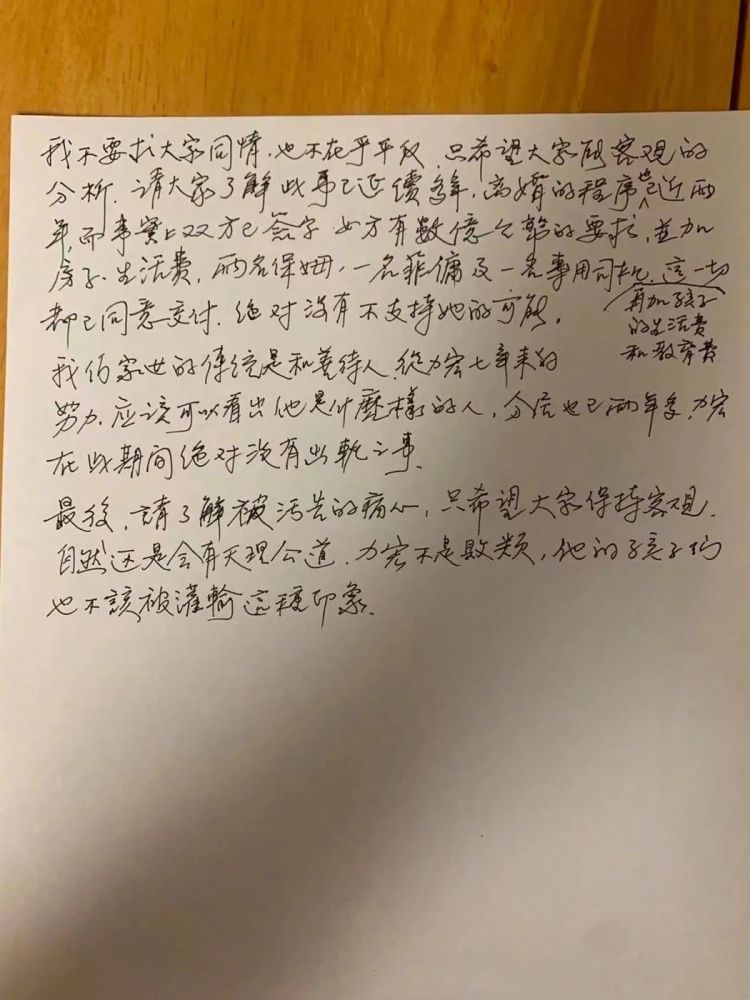 我不要求大家同情,也不在乎平反,只希望大家用客观的
分析.請大家了解此事已延續多年,离婚的程序也已近两
年,而事實上双方已簽字 女方有數億台幣的要求,並加
房子、生活費,两名保姆,一名菲傭及一名專用司机,這一切
再加孩子
的生活費
和教育費
都已同意交付.絶对沒有不支持她的可能。
我们家世的傳統是和善待人,從力宏七年来的
努力,应該可以看出他是什麽樣的人,分居也已两年多,力宏
在此期间绝对没有出軌之事.
最後,請了解被污告的痛心,只希望大家保持客观.
自然还是会有天理公道.力宏不是敗類,他的孩子们
也不該被灌輸這種印象.